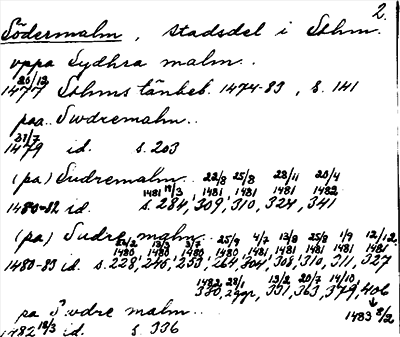 2.
Södermalm, stadsdel i Sthm.
uppa Sydhra malm..
20/12
1477 Sthms tänkeb. 1474-83, s. 141
paa.. Swdremalm..
31/7
1479 id. s. 203
(pa) Sudremalm.. 22/8 25/8 28/11 20/4
1481 19/3 1481 1481 1481 1482
1480-82 id. s. 284, 309, 310, 324, 341
(pa) Sudre malm.. 25/9 4/7 13/8 25/8 1/9 12/12
1480 1480 1480 1480 1481 1481 1481 1481 1481
1480-83 id. s. 228, 245, 253, 264, 304, 308, 310, 311, 327
1482 28/1 13/2 20/7 14/10
330, 331, 363, 379, 406
pa Swdre malm.. 1483 8/2
1482 18/3 id. s. 336